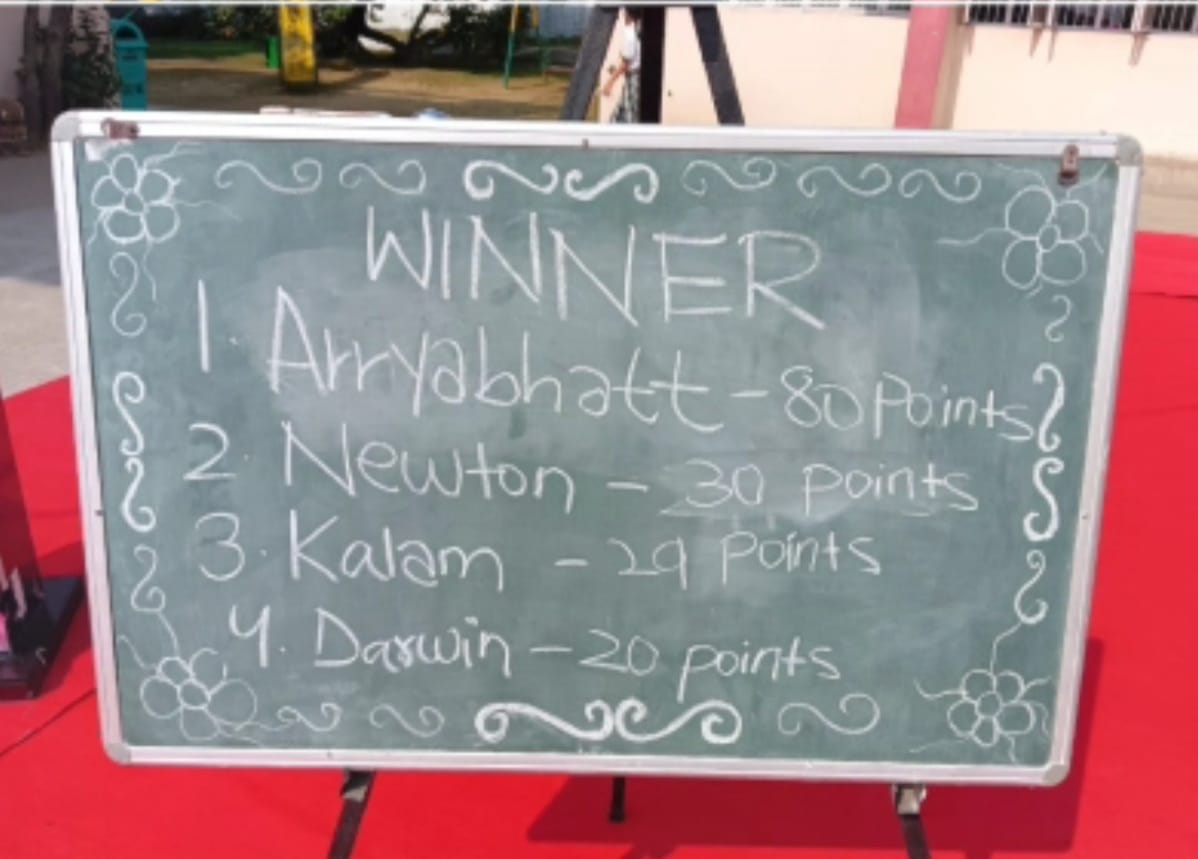 WINNER
1. Arryabhatt - 80 Points
2. Newton - 30 points
3. Kalam - 29 Points
4. Darwin - 20 points